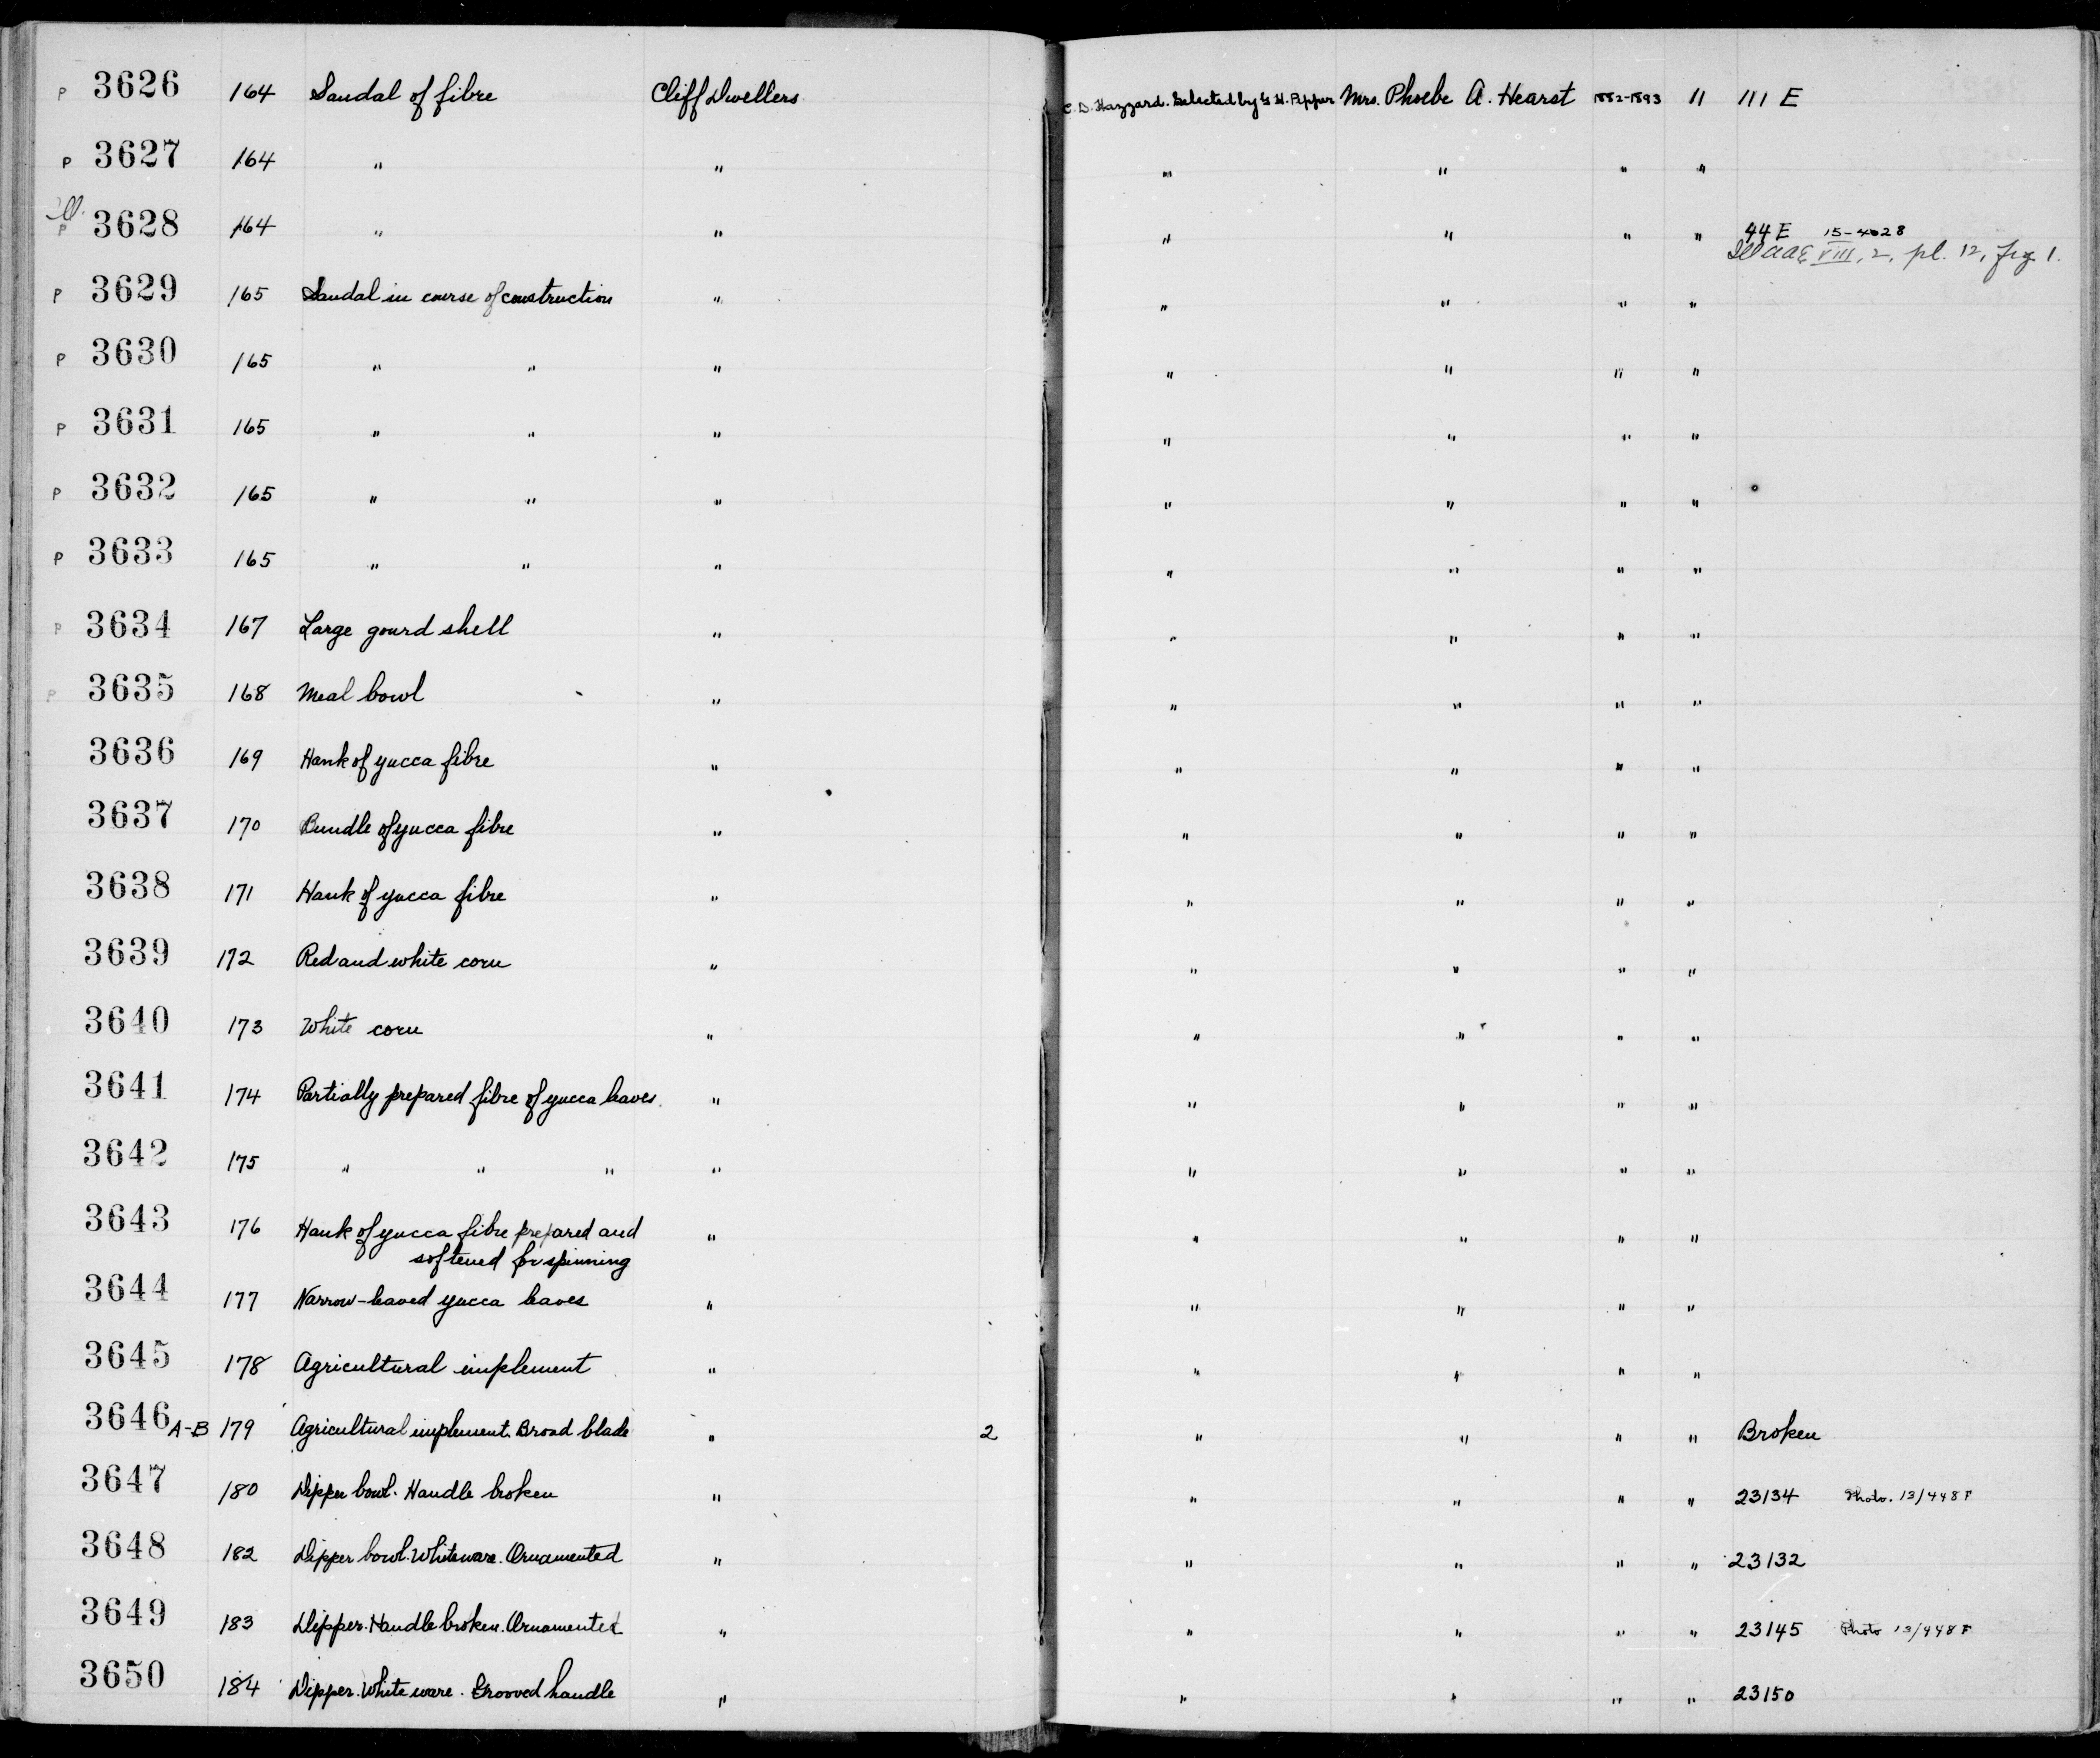 P 3626 164 Sandal of fibre Cliff Dwellers C. D. Hazzard. Selected by G. H. Pepper Mrs. Phoebe A. Hearst 1882-1893 11 111 E
P 3627 164 " " " " " "
Ill.
P 3628 164 " " " " " " 44 E 15-4028
Ill AAE VIII, 2, pl. 12, fig 1.
P 3629 165 Sandal in course of construction " " " " "
P 3630 165 " " " " " " "
P 3631 165 " " " " " " "
P 3632 165 " " " " " " "
P 3633 165 " " " " " " "
P 3634 167 Large gourd shell " " " " "
P 3635 168 Meal bowl " " " " "
3636 169 Hank of yucca fibre " " " " "
3637 170 Bundle of yucca fibre " " " " "
3638 171 Hank of yucca fibre " " " " "
3639 172 Red and white corn " " " " "
3640 173 White corn " " " " "
3641 174 Partially prepared fibre of yucca leaves. " " " " "
3642 175 " " " " " " " "
3643 176 Hank of yucca fibre prepared and " " " " "
softened for spinning
3644 177 Narrow-leaved yucca leaves " " " " "
3645 178 Agricultural implement " " " " "
3646 A-B 179 Agricultural implement. Broad blade " 2 " " " " Broken
3647 180 Dipper bowl. Handle broken " " " " " 23134 Photo. 13/448 F
3648 182 Dipper bowl. Whiteware. Ornamented " " " " " 23132
3649 183 Dipper. Handle broken. Ornamented " " " " " 23145 Photo 13/448 F
3650 184 Dipper. White ware. Grooved handle " " " " " 23150